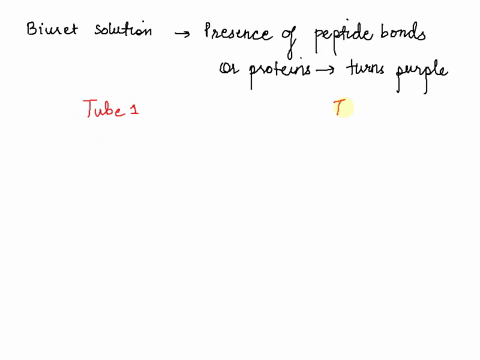 Biuret solution → Presence of peptide bonds
Or proteins → turns purple
Tube 1 T